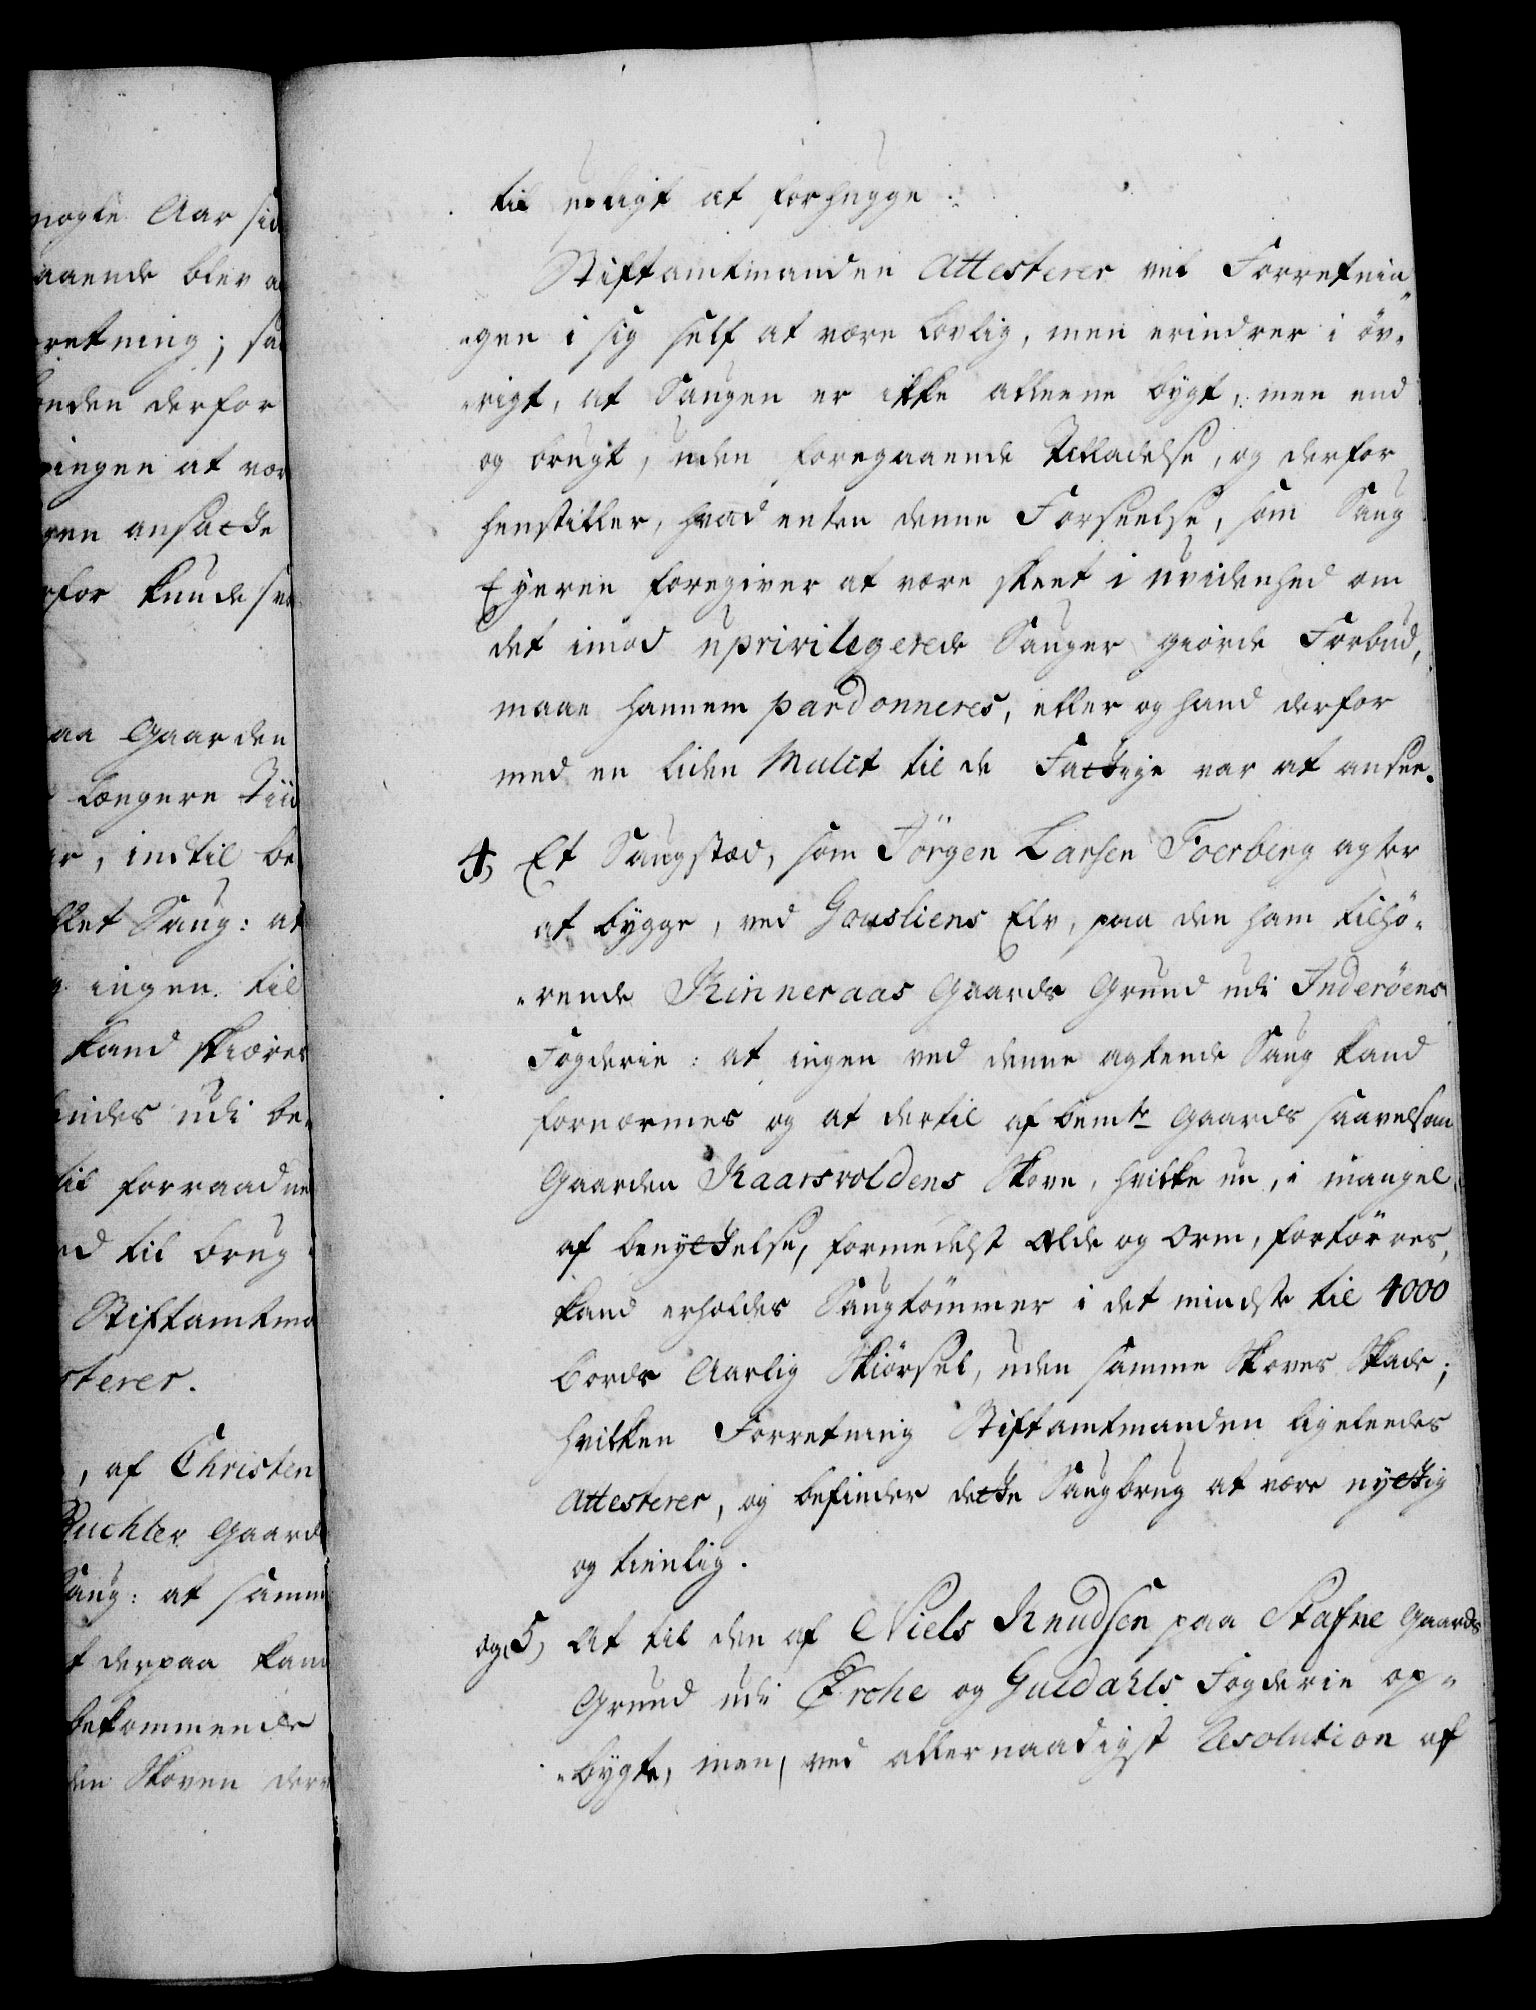 nogle Aar sid
aaende blev a
retning; saa
onden derfor
ningen at vær
gen ansatte
rfor kunde sva
aa Gaarden
længere Tiid
ar, indtil be
llet Saug: at
ingen til
kand skiæres
indes udi be-
til forraadne
ed til brug
Stiftamtma
sterer.
, af Christen
Buchter Gaards
Saug: at samme
t derpaa kand
bekommende
den Skoven der
til upligt at forhugge :
Stiftamtmanden Attesterer vel Forretnin-
-gen i sig self at være lovlig, men erindrer i öv-
-rigt, at Saugen er ikke alleene bygt, men end
og brugt, uden foregaaende Tilladelse, og derfor
henstiller, hvad enten denne Forseelse, som Saug
Eyeren foregiver at være skeet i uvidenhed om
det imod uprivilegerede Sauger giorde Forbud,
maae hannem pardonneres, eller og hand derfor
med en liden Mulct til de Fattige var at ansee.
4, Et Saugstæd, som Jörgen Larsen Foerberg agter
at bygge, ved Gousliens Elv, paa den ham tilhö-
-rende Rinneraas Gaards Grund udi Inderöens
Fogderie: at ingen ved denne agtende Saug kand
fornærmes og at dertil af bemte Gaards saavelsom
Gaarden Kaarsvoldens Skove, hvilke nu, i mangel
af benyttelse, formedelst Ælde og Orm, fortörres,
kand erholdes Saugtömmer i det mindste til 4000
bords Aarlig Skiörsel, uden samme Skoves Skade;
hvilken Forretning Stiftamtmanden ligeleedes
Attesterer, og befinder dette Saugbrug at være nyttig
og tienlig.
og 5, At til den af Niels Knudsen paa Stafne Gaards
Grund udi Örche og Guldahls Fogderie op-
-bygte, men, ved allernaadigst Resolution af